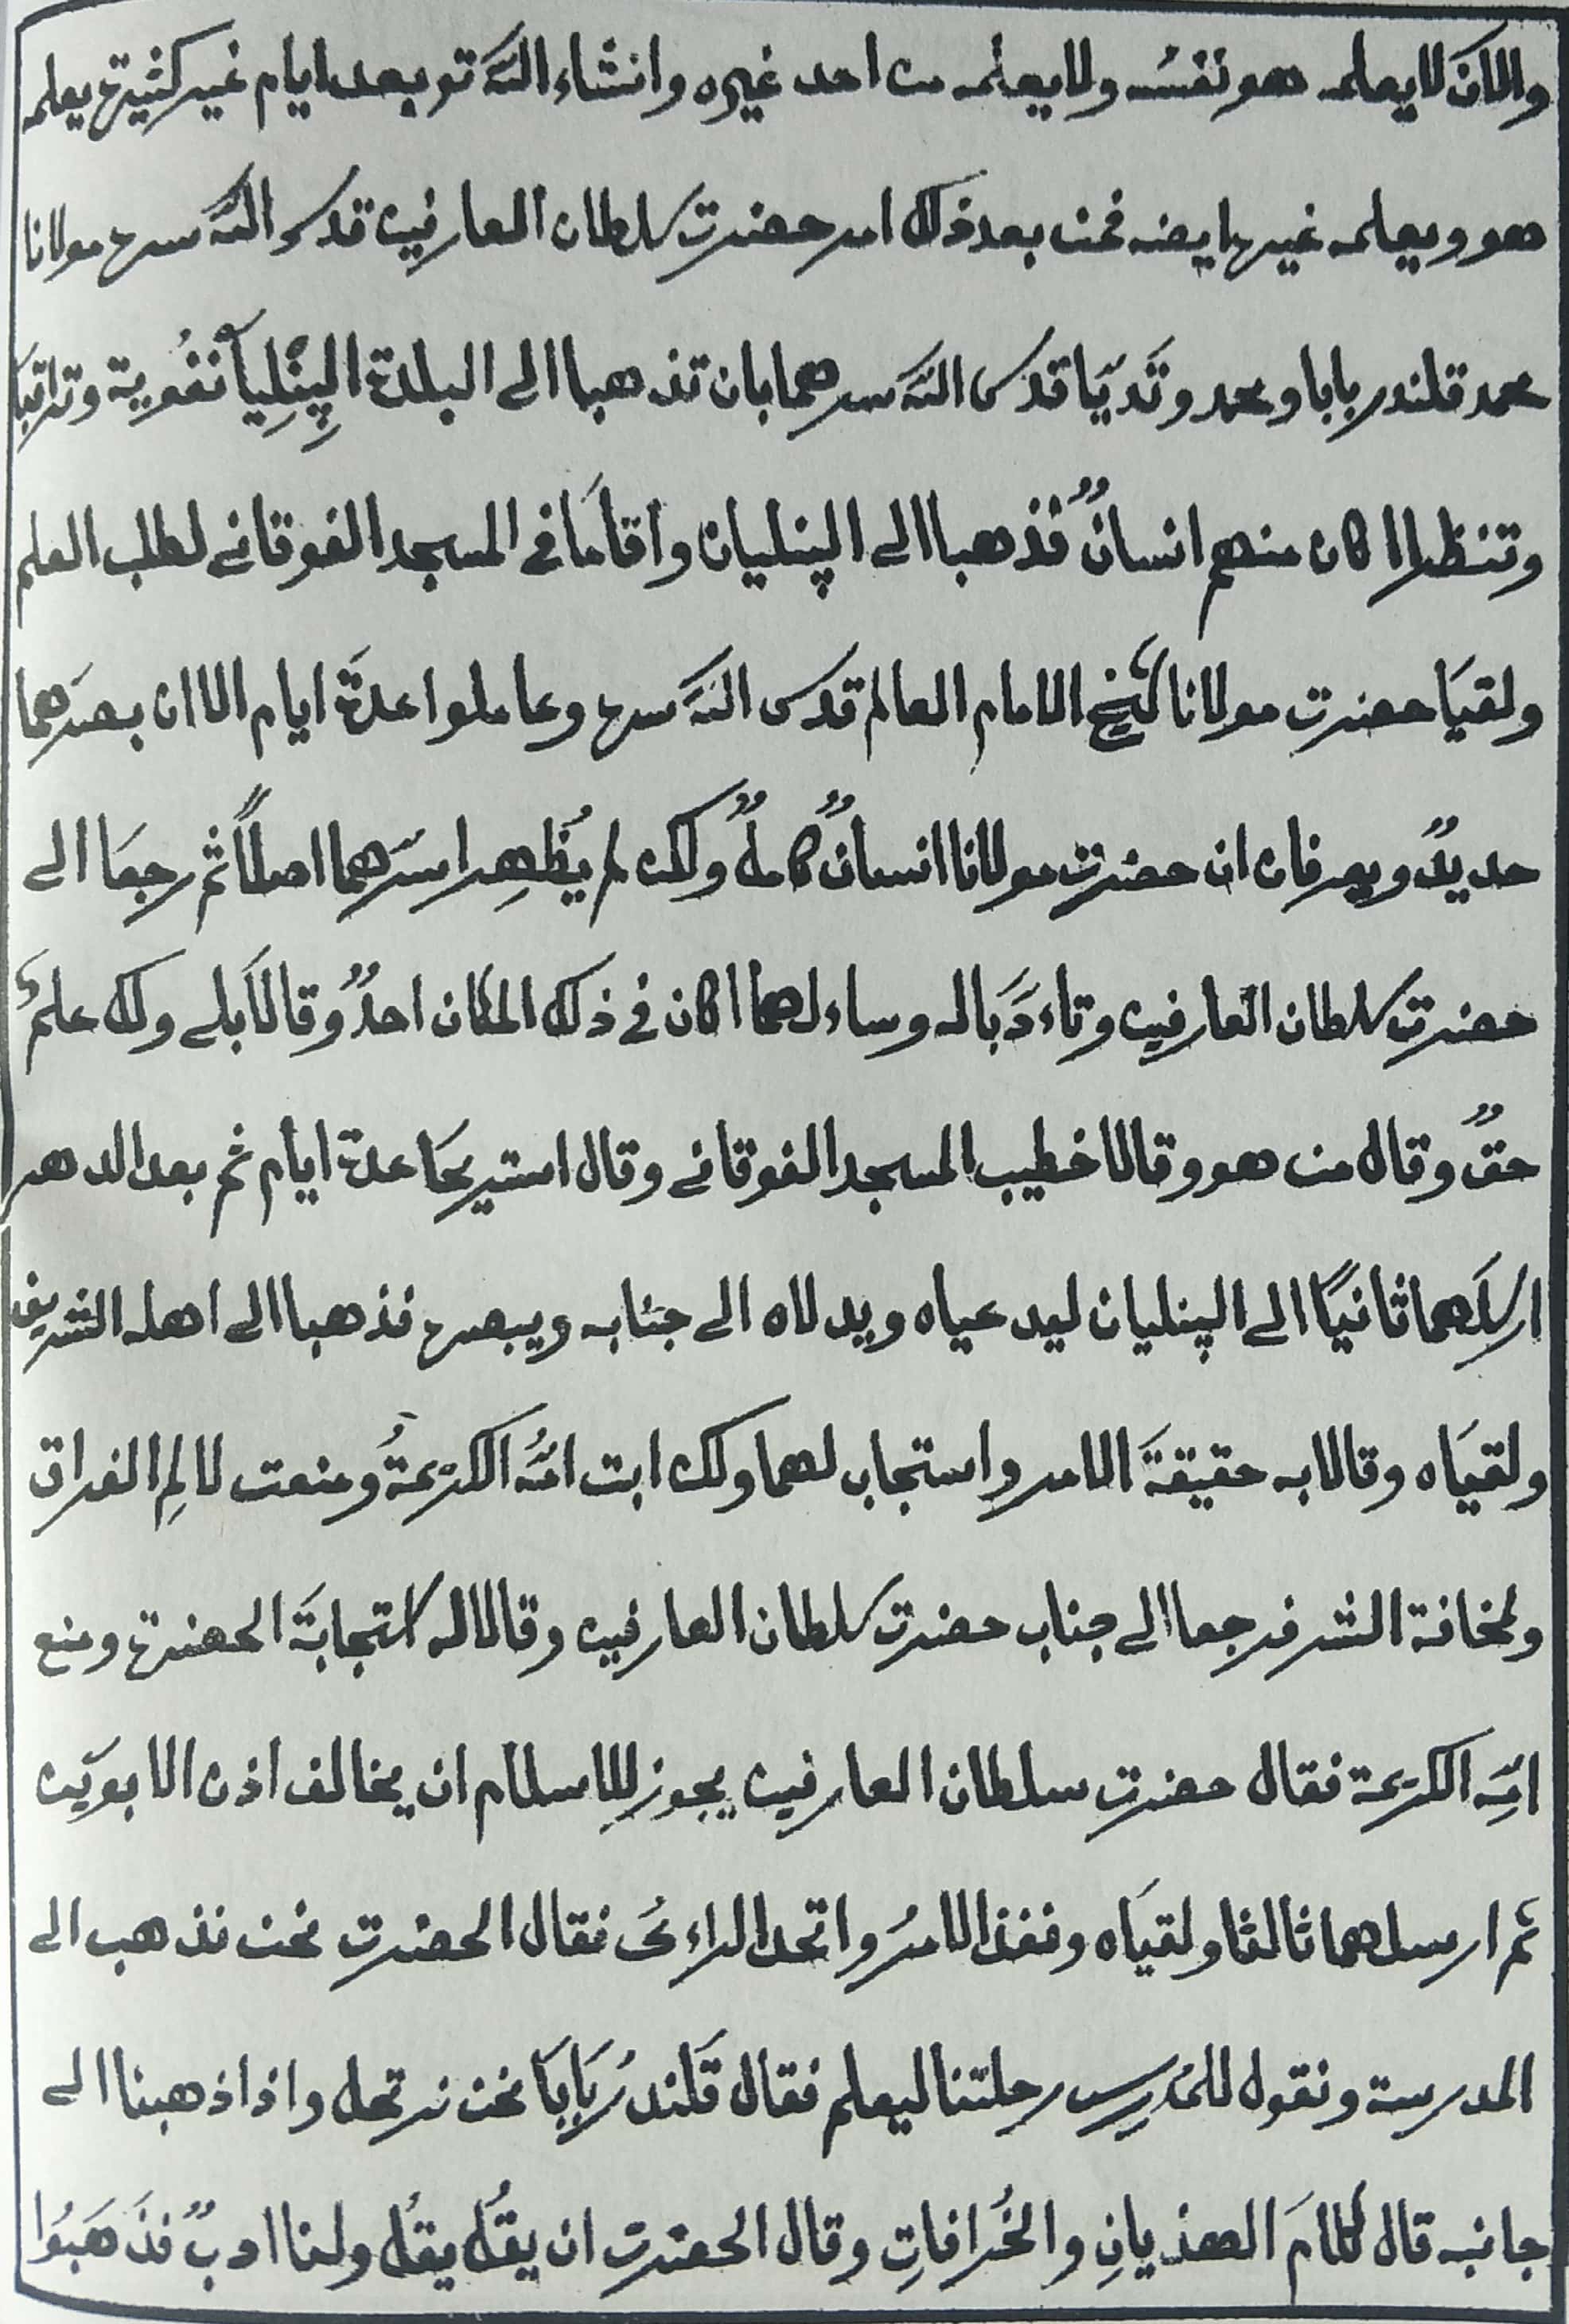 والان لايعلمه هو نفسُه ولا يعلمه من احد غيره وانشاء الله تو بعد ايام غير كثيرة يعلمه
هو ويعلمه غيره ايضه فحن بعد ذلك امر حضرت سلطان العارفين قدس الله سره مولانا
محمد قلندر بابا و محمد وتديّا قدس الله سرهما بان تذهبا الى البلدة الپِنْلِيانْفُورية وتراقبا
وتنظرا اكان منهم انسانٌ فذهبا الى الپنليان واقامَا في المسجد الفوقاني لطلب العلم
ولقيَا حضرت مولانا الشيخ الامام العالم قدس الله سره وعاملوا عدة ايام الا ان بصرَهما
حديدٌ ويعرفان ان حضرت مولانا انسانٌ كاملٌ ولكن لم يُظهِرا سرّهما اصلاً ثم رجعَا الى
حضرت سلطان العارفين وتاءدَّبا له وساءلهما اكان في ذلك المكان احدٌ وقالا بلى ولك علمٌ
حقٌ وقال من هو وقالا خطيب المسجد الفوقاني وقال استريحَا عدة ايام ثم بعد الدهر
ارسلَهما ثانيًا الى الپنليان ليدعياه ويدلاه الى جنابه ويبصره فذهبا الى اهله الشريف
ولقيَاه وقالا به حقيقةَ الامر واستجاب لهما ولكن ابت امُّه الكريمةُ ومنعت لالمِ الفراق
ولمخافة الشر فرجعا الى جناب حضرت سلطان العارفين وقالا له استجابَة الحضرة ومنع
امِّه الكريمة فقال حضرت سلطان العارفين يجوز للاسلام ان يخالف اذن الابوَين
ثم ارسلهما ثالثا ولقيَاه ونفذ الامرُ واتحد الراءىُ فقال الحضرت نحن نذهب الى
المدرسة ونقول للمدرِس رحلتنا ليعلم فقال قَلندرُ بَابَا نحن نرتحل واذا ذهبنا الى
جانبه قال كلامَ الهذيانِ والخُرافاتِ وقال الحضرت ان يقُل يقُل ولنا ادبٌ فذَهَبُوا